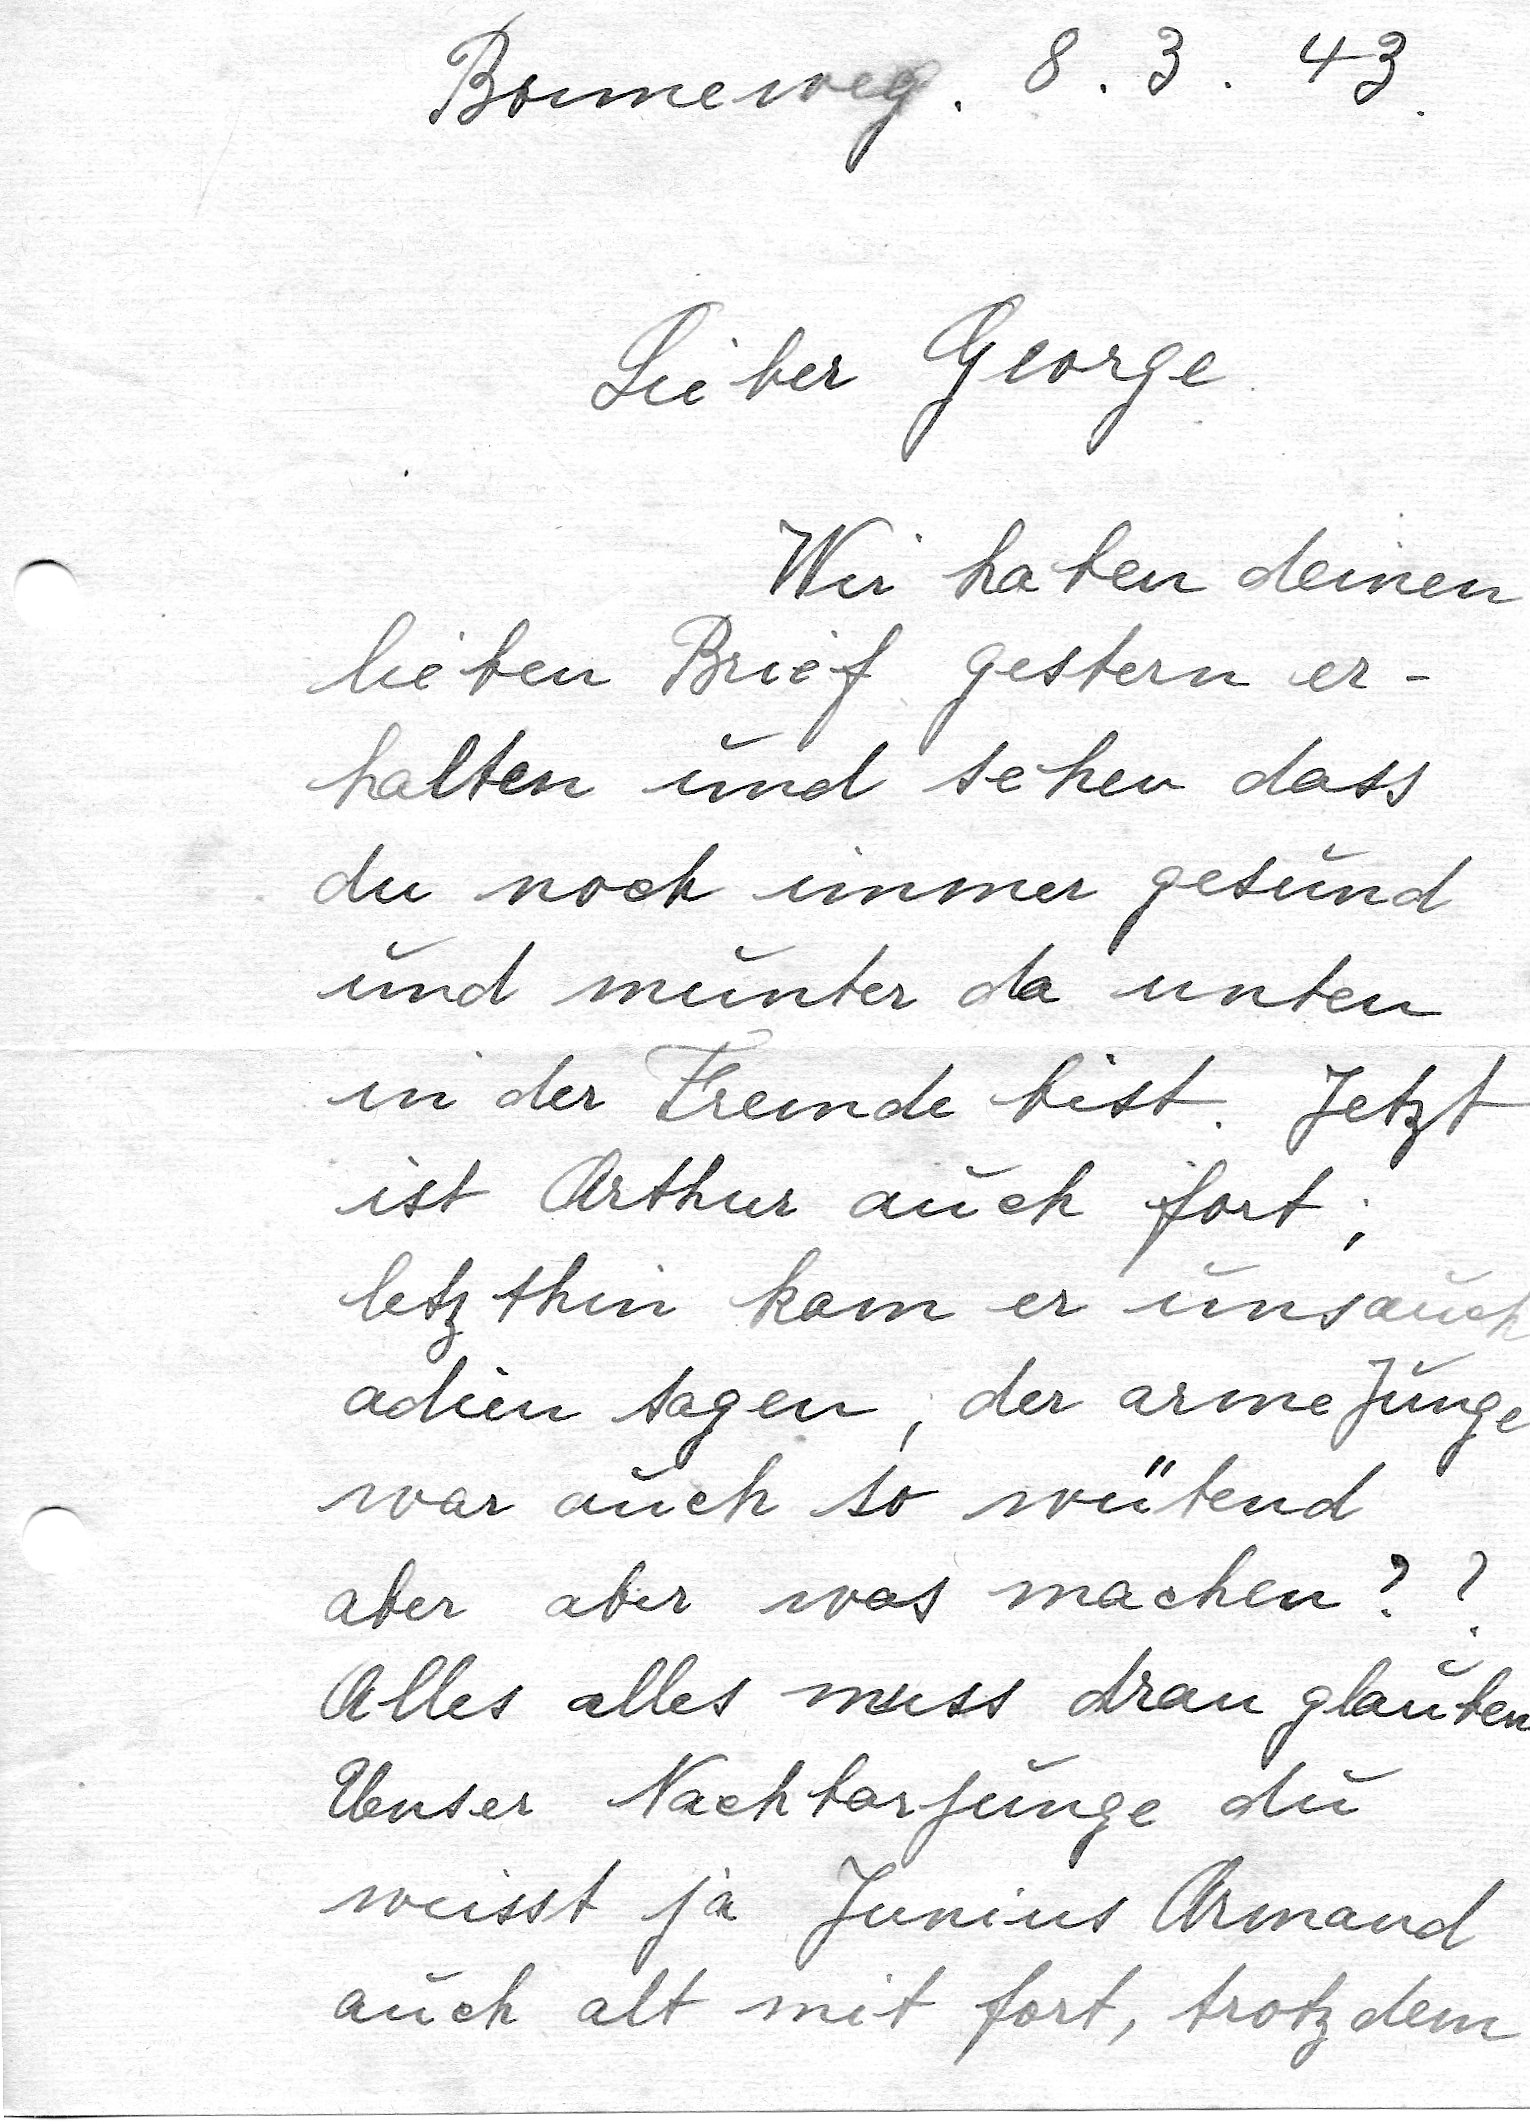 Bonneweg. 8. 3. 43.
Lieber George
Wir haben deinen
lieben Brief gestern er-
halten und sehen dass
du noch immer gesund
und munter da unten
in der Fremde bist. Jetzt
ist Arthur auch fort;
letzthin kam er uns auch
adieu sagen, der arme Junge
war auch so wütend
aber aber was machen??
Alles alles muss dran glauben
Unser Nachbarjunge du
weisst ja Junius Armand
auch alt mit fort, trotzdem